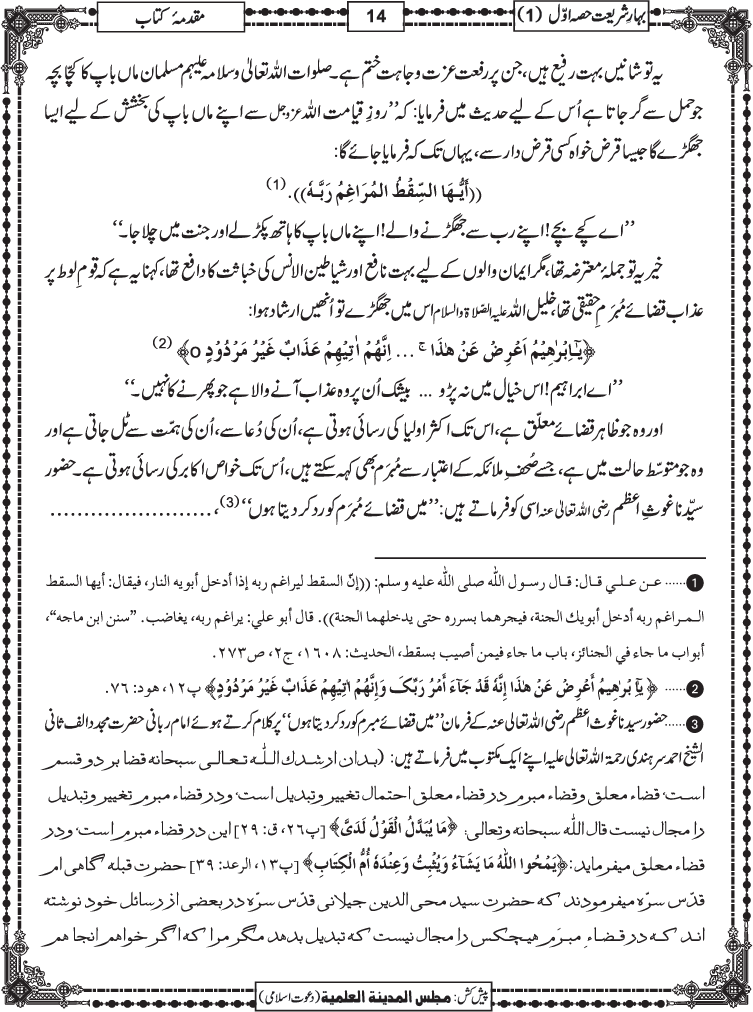 بہارِ شریعت حصہ اوّل (1)
14
مقدمۂ کتاب
یہ تو شانیں بہت رفیع ہیں، جن پر رفعت عزت و جاہت ختم ہے۔ صلوات اللہ تعالیٰ وسلامہ علیہم مسلمان ماں باپ کا کچّا بچہ
جو حمل سے گر جاتا ہے اُس کے لیے حدیث میں فرمایا: کہ ’’روزِ قیامت اللہ عزوجل سے اپنے ماں باپ کی بخشش کے لیے ایسا
جھگڑے گا جیسا قرض خواہ کسی قرض دار سے، یہاں تک کہ فرمایا جائے گا:
((أَیُّهَا السِّقْطُ المُرَاغِمُ رَبَّهٗ)). (1)
’’اے کچے بچے! اپنے رب سے جھگڑنے والے! اپنے ماں باپ کا ہاتھ پکڑ لے اور جنت میں چلا جا۔‘‘
خیر یہ تو جملۂ معترضہ تھا، مگر ایمان والوں کے لیے بہت نافع اور شیاطین الانس کی خباثت کا دافع تھا، کہنا یہ ہے کہ قومِ لوط پر
عذاب قضائے مُبرَمِ حقیقی تھا، خلیل اللہ علیہ الصّلاۃ والسلام اس میں جھگڑے تو اُنھیں ارشاد ہوا:
﴿یٰۤـاِبْرٰهِیْمُ اَعْرِضْ عَنْ هٰذَا ۚ … اِنَّهُمْ اٰتِیْهِمْ عَذَابٌ غَیْرُ مَرْدُوْدٍ o﴾ (2)
’’اے ابراہیم! اس خیال میں نہ پڑو … بیشک اُن پر وہ عذاب آنے والا ہے جو پھرنے کا نہیں۔‘‘
اور وہ جو ظاہر قضائے معلّق ہے، اس تک اکثر اولیا کی رسائی ہوتی ہے، اُن کی دُعا سے، اُن کی ہمّت سے ٹل جاتی ہے اور
وہ جو متوسّط حالت میں ہے، جسے صُحفِ ملائکہ کے اعتبار سے مُبرَم بھی کہہ سکتے ہیں، اُس تک خواص اکابر کی رسائی ہوتی ہے۔ حضور
سیّدنا غوثِ اعظم رضی اللہ تعالیٰ عنہ اسی کو فرماتے ہیں: ’’میں قضائے مُبرَم کو رد کر دیتا ہوں‘‘(3)، ........................
1 ...... عن علي قال: قال رسول اللّٰه صلى اللّٰه عليه وسلم: ((إنّ السقط ليراغم ربه إذا أدخل أبويه النار، فيقال: أيها السقط
المراغم ربه أدخل أبويك الجنة، فيجرهما بسرره حتى يدخلهما الجنة)). قال أبو علي: يراغم ربه، يغاضب. ”سنن ابن ماجه“،
أبواب ما جاء في الجنائز، باب ما جاء فيمن أصيب بسقط، الحديث: ١٦٠٨، ج٢، ص٢٧٣.
2 ...... ﴿ یٰۤاِبْرٰهِیمُ أَعْرِضْ عَنْ هٰذَا إِنَّهٗ قَدْ جَآءَ أَمْرُ رَبِّكَ وَإِنَّهُمْ اٰتِیْهِمْ عَذَابٌ غَیْرُ مَرْدُوْدٍ﴾ پ١٢، هود: ٧٦.
3 ...... حضور سیدنا غوث اعظم رضی اللہ تعالی عنہ کے فرمان ’’میں قضائے مبرم کو رد کر دیتا ہوں‘‘ پر کلام کرتے ہوئے امام ربانی حضرت مجدد الف ثانی
الشیخ احمد سرہندی رحمۃ اللہ تعالی علیہ اپنے ایک مکتوب میں فرماتے ہیں: (بدان ارشدك اللّٰه تعالى سبحانه قضا بر دو قسم
است قضاء معلق وقضاء مبرم در قضاء معلق احتمال تغییر وتبدیل است ودر قضاء مبرم تغییر وتبدیل
را مجال نیست قال اللّٰه سبحانه وتعالى: ﴿مَا یُبَدَّلُ الْقَوْلُ لَدَیَّ﴾ [پ٢٦، ق: ٢٩] این در قضاء مبرم است ودر
قضاء معلق میفرماید: ﴿یَمْحُوا اللّٰهُ مَا یَشَآءُ وَیُثْبِتُ وَعِنْدَهٗ أُمُّ الْكِتَابِ﴾ [پ١٣، الرعد: ٣٩] حضرت قبله گاهی ام
قدّس سرّه میفرمودند که حضرت سید محی الدین جیلانی قدّس سرّه در بعضی از رسائل خود نوشته
اند که در قضاءِ مبرَم هیچکس را مجال نیست که تبدیل بدهد مگر مرا که اگر خواهم انجا هم
پیش کش: مجلس المدینة العلمیة (دعوت اسلامی)